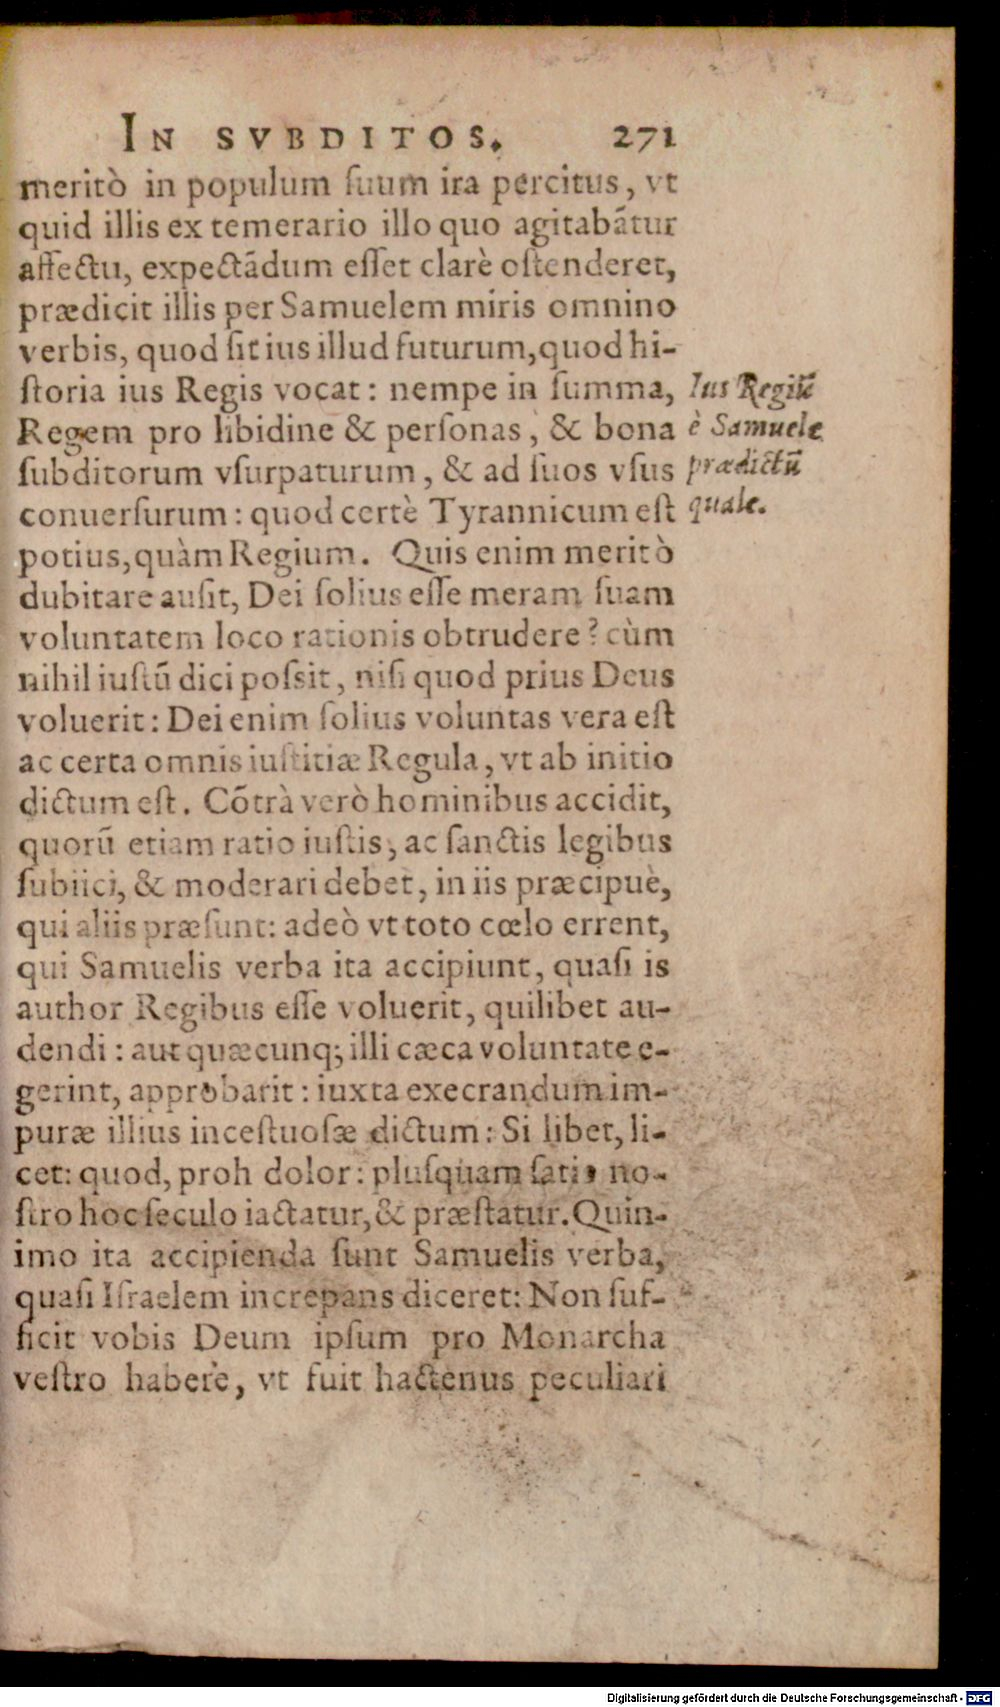 IN SVBDITOS. 271
meritò in populum ſuum ira percitus, vt
quid illis ex temerario illo quo agitabãtur
affectu, expectãdum eſſet clarè oſtenderet,
prædicit illis per Samuelem miris omnino
verbis, quod ſit ius illud futurum, quod hi-
ſtoria ius Regis vocat: nempe in ſumma,
Regem pro libidine & perſonas, & bona
ſubditorum vſurpaturum, & ad ſuos vſus
conuerſurum: quod certè Tyrannicum eſt
potius, quàm Regium. Quis enim meritò
dubitare auſit, Dei ſolius eſſe meram ſuam
voluntatem loco rationis obtrudere? cùm
nihil iuſtũ dici poſsit, niſi quod prius Deus
voluerit: Dei enim ſolius voluntas vera eſt
ac certa omnis iuſtitiæ Regula, vt ab initio
dictum eſt. Cõtrà verò hominibus accidit,
quorũ etiam ratio iuſtis, ac ſanctis legibus
ſubiici, & moderari debet, in iis præcipuè,
qui aliis præſunt: adeò vt toto cœlo errent,
qui Samuelis verba ita accipiunt, quaſi is
author Regibus eſſe voluerit, quilibet au-
dendi: aut quæcunq; illi cæca voluntate e-
gerint, approbarit: iuxta execrandum im-
puræ illius inceſtuoſæ dictum: Si libet, li-
cet: quod, proh dolor: pluſquam ſatis no-
ſtro hoc ſeculo iactatur, & præſtatur. Quin-
imo ita accipienda ſunt Samuelis verba,
quaſi Iſraelem increpans diceret: Non ſuf-
ficit vobis Deum ipſum pro Monarcha
veſtro haberè, vt fuit hactenus peculiari
Ius Regiũ
è Samuele
prædictũ
quale.
Digitalisierung gefördert durch die Deutsche Forschungsgemeinschaft - DFG